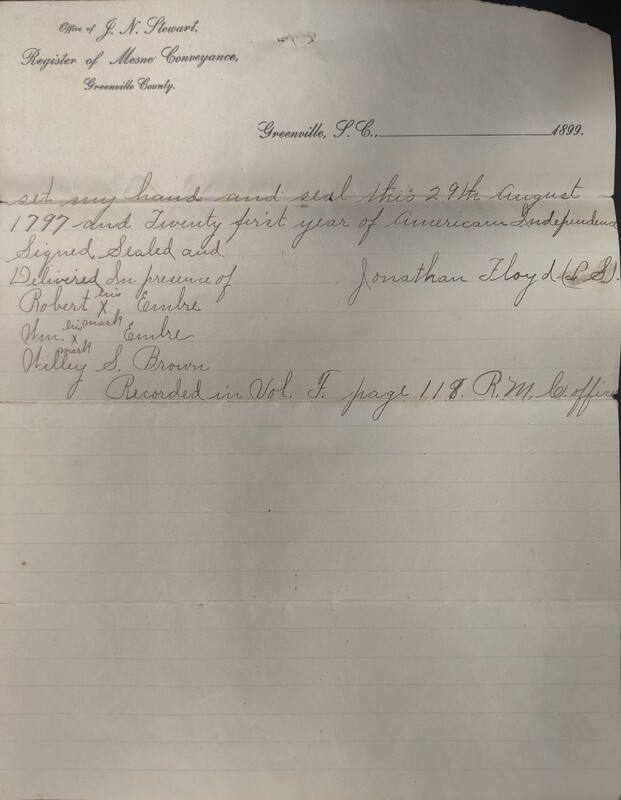 Office of J. N. Stewart,
Register of Mesne Conveyance,
Greenville County.
Greenville, S. C., 1899.
set my hand and seal this 29th August
1797 and Twenty first year of American Independence
Signed, Sealed and
Delivered In presence of Jonathan Floyd (L. S).
Robert his X mark Embre
Wm. his X mark Embre
Willey S. Brown
Recorded in Vol. F. page 118. R. M. C. office